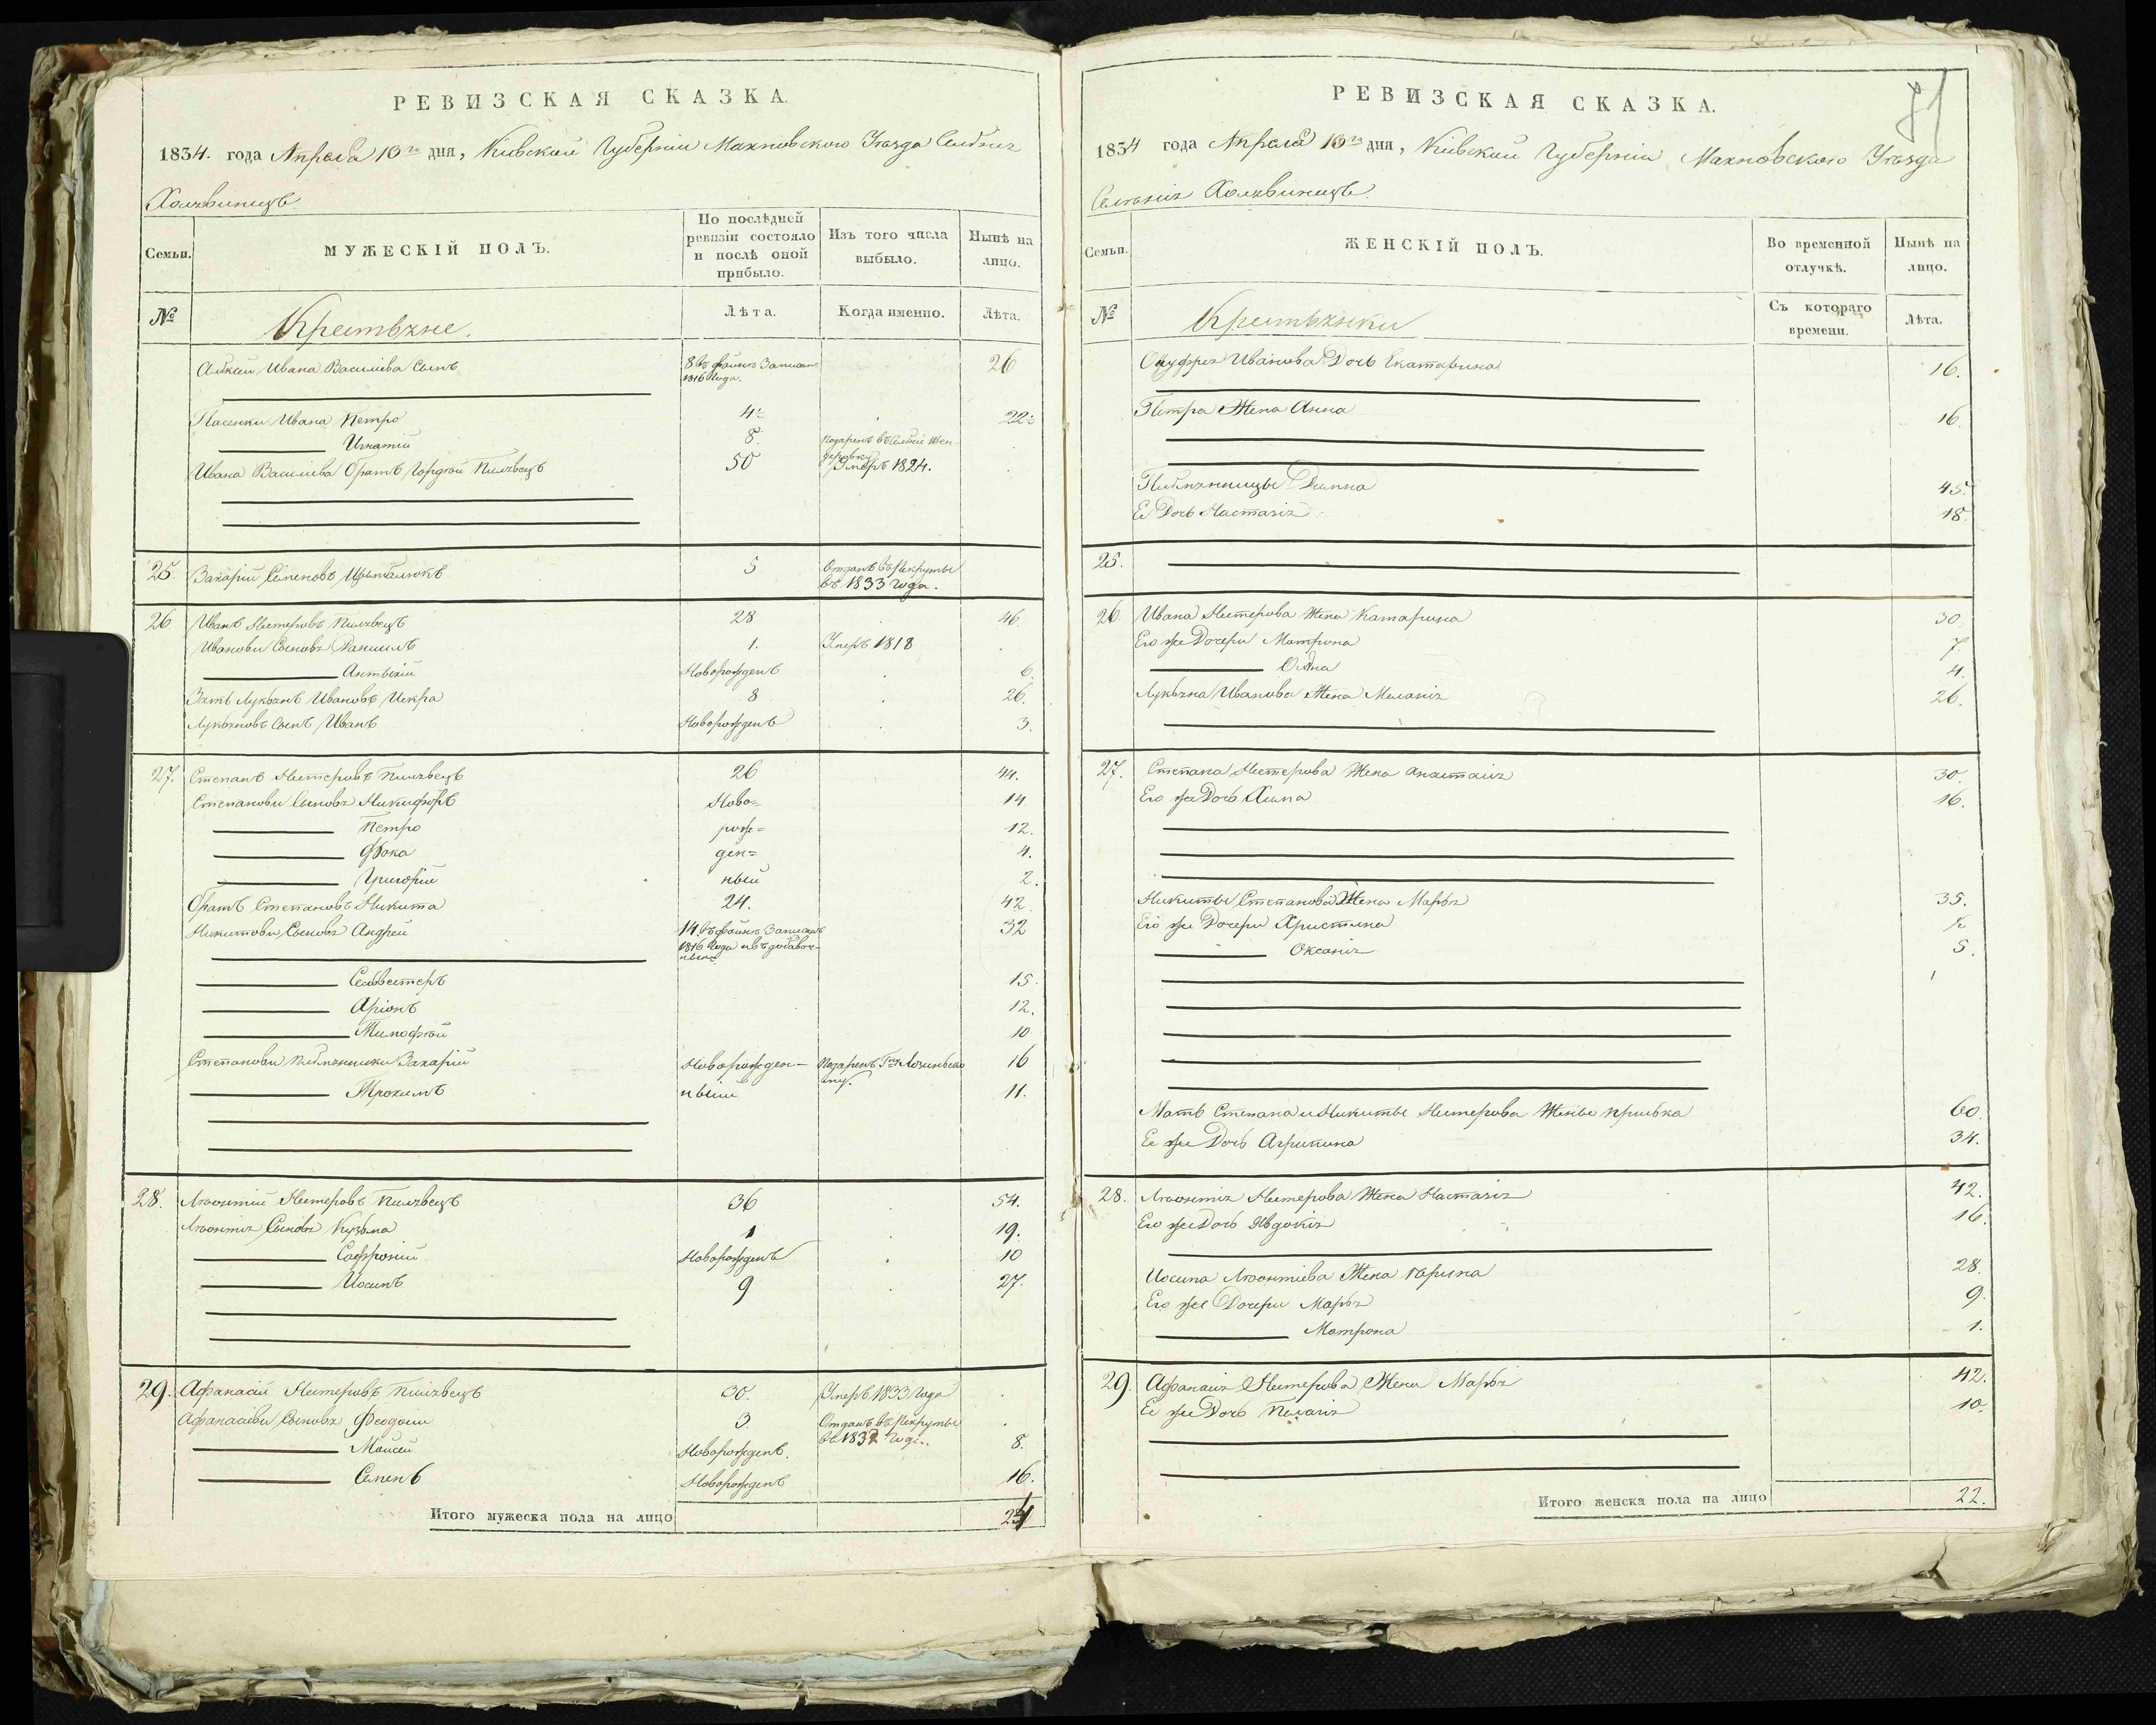 РЕВИЗСКАЯ СКАЗКА.
1834. года Апреля 10го дня, Кіевской Губерніи Махновского Уезда Селенія
Холявинецъ
Семьи.
МУЖЕСКІЙ ПОЛЪ.
По послѣдней ревизіи состояло и послѣ оной прибыло.
Изъ того числа выбыло.
Нынѣ на лицо.
№
Крестьяне.
Лѣта.
Когда именно.
Лѣта.
Алексей Ивана Василіева Сынъ 8 26
1816 Года.
Пасенки Ивана Петро 4 22
Игнатій 8. Подаренъ въ Селеніе
Ивана Василіева Братъ Гордгей Пилявецъ 50 Умеръ 1824.
25 Захарій Семеновъ 5 Отданъ въ Рекруты
въ 1833 года.
26 Иванъ Нестеровъ Пилявецъ 28 46.
Иванови Сыновя Данiилъ 1. Умеръ 1818
Новорожденъ 6.
Зять Лукьянъ Ивановъ Искра 8 26.
Лукьяновъ Сынъ Иванъ Новорожденъ 3.
27. Степанъ Нестеровъ Пилявецъ 26 44.
Степанови Сыновя Никифоръ Ново= 14
Петро рож= 12.
Фока ден= 4.
Григорій ный 2.
Братъ Степановъ Никита 24. 42
Никитови Сыновя Андрей 14 32
1816 Года
Селвестеръ 15.
Аріонъ 12.
Тимофтей 10
Степанови Захарій Новорожден- Подаренъ 16
Трохимъ ныіи 11.
28. Леонтій Нестеровъ Пилявецъ 36 54.
Леонтія Сыновя Кузьма 1 19.
Софроній Новорожденъ 10
Иосипъ 9 27.
29. Афанасій Нестеровъ Пилявецъ 30. Умеръ 1833 Года
Афанасіеви Сыновя Феодосій 3 Отданъ въ Рекруты
Моисей Новорожденъ. 8.
Семенъ Новорожденъ 16.
Итого мужеска пола на лицо 24
РЕВИЗСКАЯ СКАЗКА.
1834 года Апреля 10го дня, Кіевской Губерніи Махновского Уезда
Селенія Холявинецъ
Семьи.
ЖЕНСКІЙ ПОЛЪ.
Во временной отлучкѣ.
Нынѣ на лицо.
№
Крестьянки
Съ котораго времени.
Лѣта.
Онуфрея Иванова Дочь Екатерина 16.
Петра Жена Анна 16.
45.
Ее Дочь Настазія 18.
25.
26. Ивана Нестерова Жена Катарина 30.
Его же Дочери Матрона 7
4.
Лукьяна Иванова Жена Меланія 26.
27. Степана Нестерова Жена Анастасія 30.
Его же Дочь 16.
Никиты Степанова Жена Марья 35.
Его же Дочери Христина
Оксанія 5.
Мать Степана и Никиты Нестерова Жена 60.
Ее же Дочь Агрипина 34.
28. Леонтія Нестерова Жена Настазія 42.
Его же Дочь Явдокія 16.
Иосипа Леонтіева Жена 28.
Его же Дочери Марья 9.
Матрона 1.
29. Афанасія Нестерова Жена Марья 42.
Ее же Дочь Пелагія 10.
Итого женска пола на лицо 22.